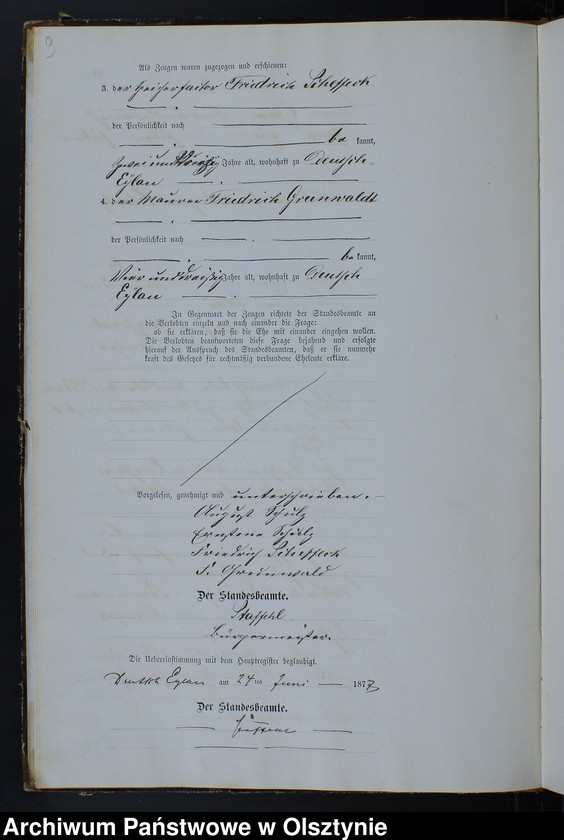 9
Als Zeugen waren zugezogen und erschienen:
3. der Friedrich Scheffleck
der Persönlichkeit nach
be kannt,
zwei und Jahre alt, wohnhaft zu Deutsch
Eylau
4. der Maurer Friedrich Grunwaldt
der Persönlichkeit nach
be kannt,
Vier und dreißig Jahre alt, wohnhaft zu Deutsch
Eylau
In Gegenwart der Zeugen richtete der Standesbeamte an
die Verlobten einzeln und nach einander die Frage:
ob sie erklären, daß sie die Ehe mit einander eingehen wollen.
Die Verlobten beantworteten diese Frage bejahend und erfolgte
hierauf der Ausspruch des Standesbeamten, daß er sie nunmehr
kraft des Gesetzes für rechtmäßig verbundene Eheleute erkläre.
Vorgelesen, genehmigt und unterschrieben.
August Schulz
Schulz
Friedrich Scheffleck
F. Grunwald
Der Standesbeamte.
Staffehl
Bürgermeister.
Die Uebereinstimmung mit dem Hauptregister beglaubigt.
Deutsch Eylau am 24ten Juni 1877
Der Standesbeamte.
Archiwum Państwowe w Olsztynie